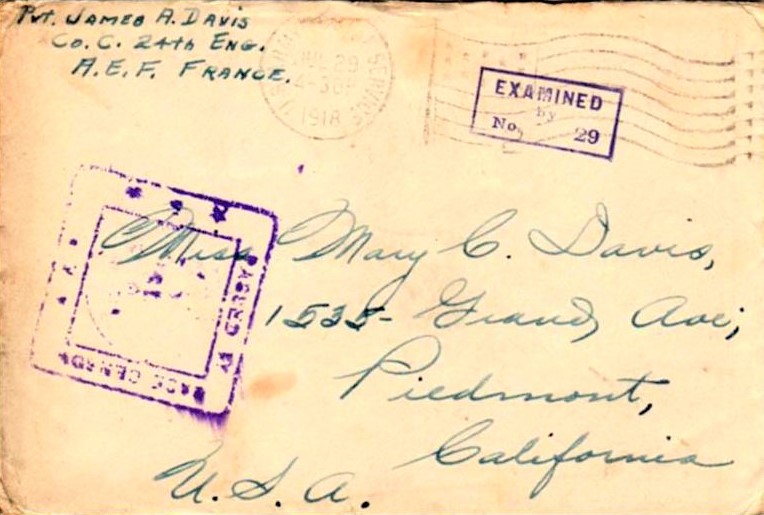 Pvt. JAMES A. DAVIS
Co. C. 24th ENG.
A.E.F. FRANCE.
JUL 29
4-30P
1918
EXAMINED
by
No. 29
PASSED BY
BASE CENSOR
Miss Mary C. Davis,
1535- Grand Ave;
Piedmont,
California
U.S.A.